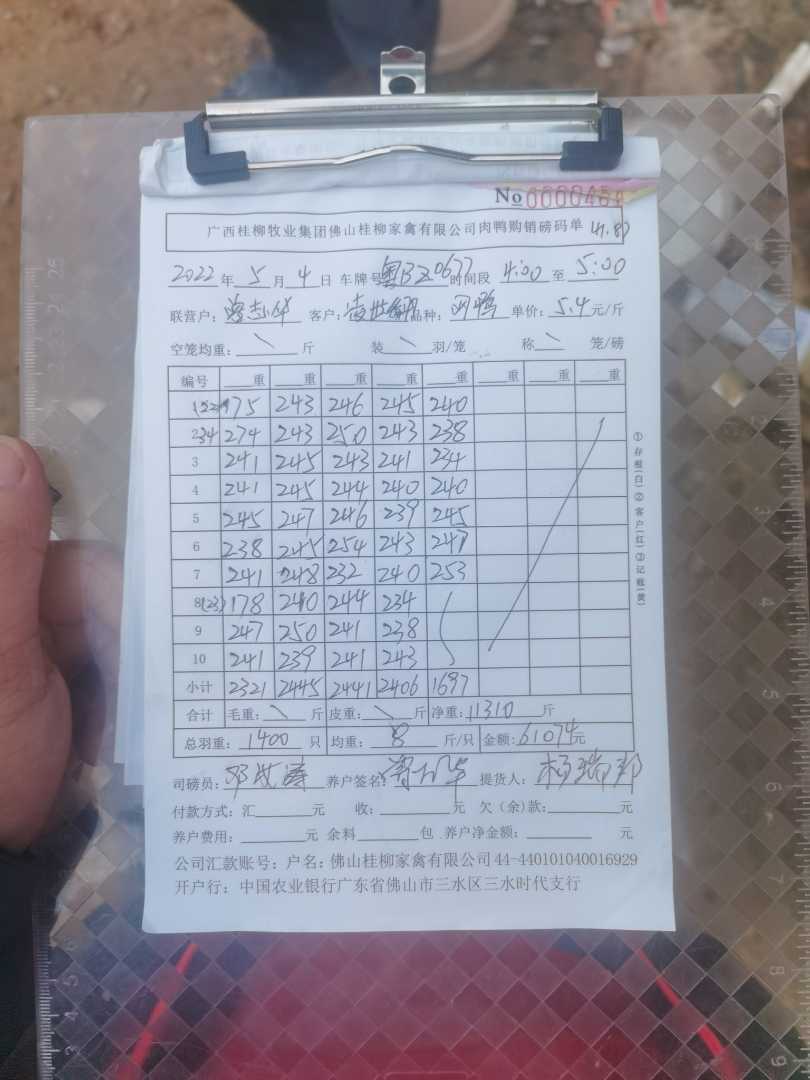 No 000045
广西桂柳牧业集团佛山桂柳家禽有限公司肉鸭购销磅码单
2022年 5月 4日 车牌号 粤BZ0677 时间段 4:00 至 5:00
联营户: 客户: 品种: 肉鸭 单价: 5.4元/斤
空笼均重: \ 斤 装 \ 羽/笼 称 \ 笼/磅
编号 重 重 重 重 重 重 重 重
1 175 243 246 245 240
2 274 243 250 243 238
3 241 245 243 241 234
4 241 245 244 240 240
5 245 247 246 239 245
6 238 245 254 243 247
7 241 248 232 240 253
8(23) 178 240 244 234
9 247 250 241 238
10 241 239 241 243
小计 2321 2445 2441 2406 1697
合计 毛重: \ 斤 皮重: \ 斤 净重: 11310 斤
总羽重: 1400 只 均重: 8 斤/只 金额: 61074元
司磅员: 养户签名: 提货人: 杨瑞邦
付款方式: 汇 元 收: 元 欠(余)款: 元
养户费用: 元 余料 包 养户净金额: 元
公司汇款账号: 户名: 佛山桂柳家禽有限公司 44-440101040016929
开户行: 中国农业银行广东省佛山市三水区三水时代支行
①存根(白)②客户(红)③记账(黄)